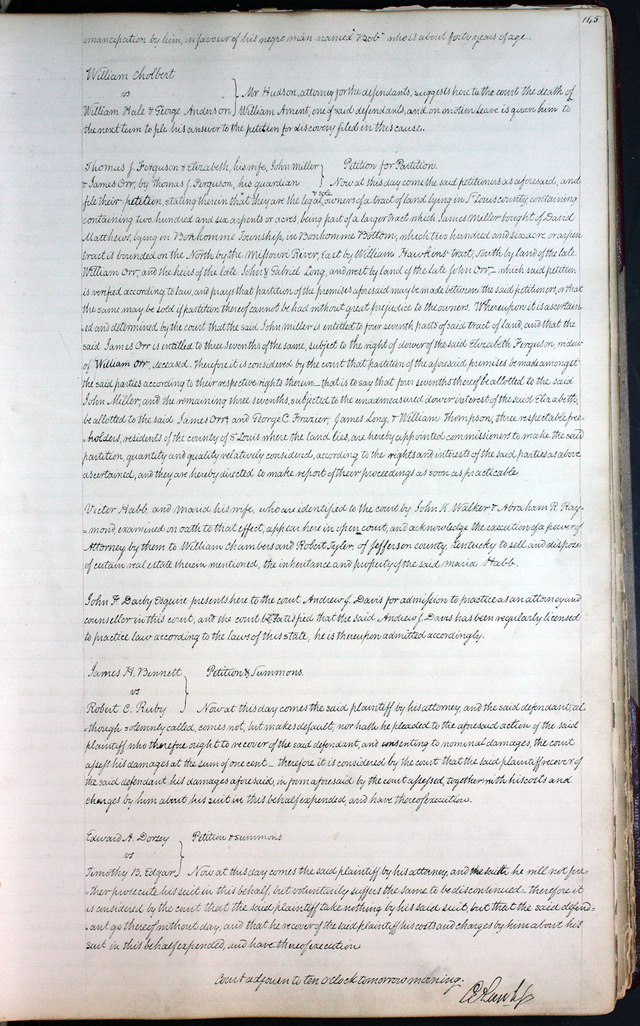 145
emancipation by him, in favour of his negro man named "Bob" who is about forty years of age.
William Cholbert
vs
William Hale & George Anderson } Mr Hudson, attorney for the defendants, suggests here to the court the death of
William Ament, one of said defendants, and on motion leave is given him to
the next term to file his answer to the petition for discovery filed in this cause.
Thomas J. Ferguson & Elizabeth, his wife, John Miller } Petition for Partition.
& James Orr, by Thomas J. Ferguson, his guardian } Now at this day come the said petitioners as aforesaid, and
file their petition, stating therein that they are the legal & sole owners of a tract of land lying in St Louis county containing
containing two hundred and six arpents or acres, being part of a larger tract which James Miller bought of David
Matthews, lying in Bonhomme Township, in Bonhomme Bottom, which two hundred and six acre or arpen
tract is bounded on the North by the Missouri River, East by William Hawkins' tract, South by land of the late
William Orr, and the heirs of the late John & Gabriel Long, and west by land of the late John Orr_ which said petition
is verified according to law, and prays that partition of the premises aforesaid may be made between the said petitioners, or that
the same may be sold if partition thereof cannot be had without great prejudice to the owners. Whereupon it is ascertain
ed and determined by the court that the said John Miller is entitled to four seventh parts of said tract of land, and that the
said James Orr is entitled to three sevenths of the same, subject to the right of dower of the said Elizabeth Ferguson, widow
of William Orr, deceased. Therefore it is considered by the court that partition of the aforesaid premises be made amongst
the said parties according to their respective rights therein_ that is to say that four sevenths thereof be allotted to the said
John Miller, and the remaining three sevenths, subjected to the unadmeasured dower interest of the said Elizabeth,
be allotted to the said James Orr, and George C. Frazier, James Long, & William Thompson, three respectable free-
-holders, residents of the county of St Louis where the land lies, are hereby appointed commissioners to make the said
partition, quantity and quality relatively considered, according to the rights and interests of the said parties as above
ascertained, and they are hereby directed to make report of their proceedings as soon as practicable
Victor Habb, and Maria his wife, who are identified to the court by John K. Walker & Abraham R. Ray-
-mond, examined on oath to that effect, appear here in open court, and acknowledge the execution of a power of
Attorney by them to William Chambers and Robert Tyler, of Jefferson county, Kentucky to sell and dispose
of certain real estate therein mentioned, the inheritance and property of the said Maria Habb.
John F. Darby Esquire presents here to the court Andrew J. Davis for admission to practice as an attorney and
counsellor in this court, and the court being satisfied that the said Andrew J. Davis has been regularly licensed
to practice law according to the laws of this state, he is thereupon admitted accordingly.
James H. Bennett } Petition & Summons.
vs
Robert C. Ruby } Now at this day comes the said plaintiff by his attorney, and the said defendant, al-
-though solemnly called, comes not, but makes default, nor hath he pleaded to the aforesaid action of the said
plaintiff who therefore ought to recover of the said defendant, and consenting to nominal damages, the court
assess his damages at the sum of one cent_ therefore it is considered by the court that the said plaintiff recover of
the said defendant his damages aforesaid, in form aforesaid by the court assessed, together with his costs and
charges by him about his suit in this behalf expended, and have thereof execution.
Edward A. Dorsey } Petition & summons
vs
Timothy B. Edgar } Now at this day comes the said plaintiff by his attorney, and saith he will not fur-
-ther prosecute his suit in this behalf, but voluntarily suffers the same to be discontinued. therefore it
is considered by the court that the said plaintiff take nothing by his said suit, but that the said defend-
-ant go thereof without day, and that he recover of the said plaintiff his costs and charges by him about his
suit in this behalf expended, and have thereof execution
Court adjourn to ten o'clock tomorrow morning.